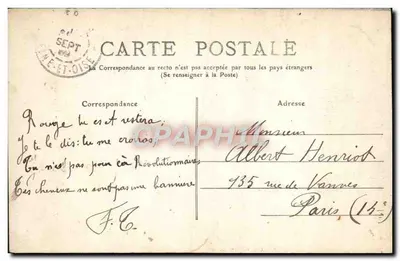 SEPT
ET-OISE
CARTE POSTALE
La Correspondance au recto n'est pas acceptée par tous les pays étrangers
(Se renseigner à la Poste)
Correspondance
Adresse
Rouge tu es et restera,
Je te le dis: tu me croiras
Tu n'es pas pour ça Révolutionnaires
Tes cheveux ne sont pas une bannière
Monsieur
Albert Henriot
135 rue de Vanves
Paris (14e